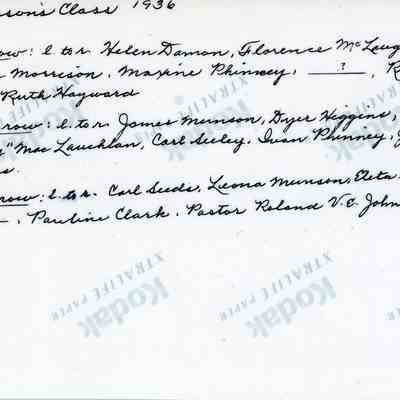 son's Class 1936
row: l. to r. Helen Damon, Florence McLaug
Morrison, Maxine Phinney, ?,
Ruth Hayward
row: l. to r. James Munson, Dyer Higgins,
" MacLauchlan, Carl Seeley, Ivan Phinney,
s.
row: l. to r. Carl Seeds, Leona Munson, Eleta
, Pauline Clark, Pastor Roland V.C. John
Kodak
XTRALIFE PAPER
Kodak
XTRALIFE PAPER
Kodak
XTRALIFE PAPER
Kodak
XTRALIFE PAPER